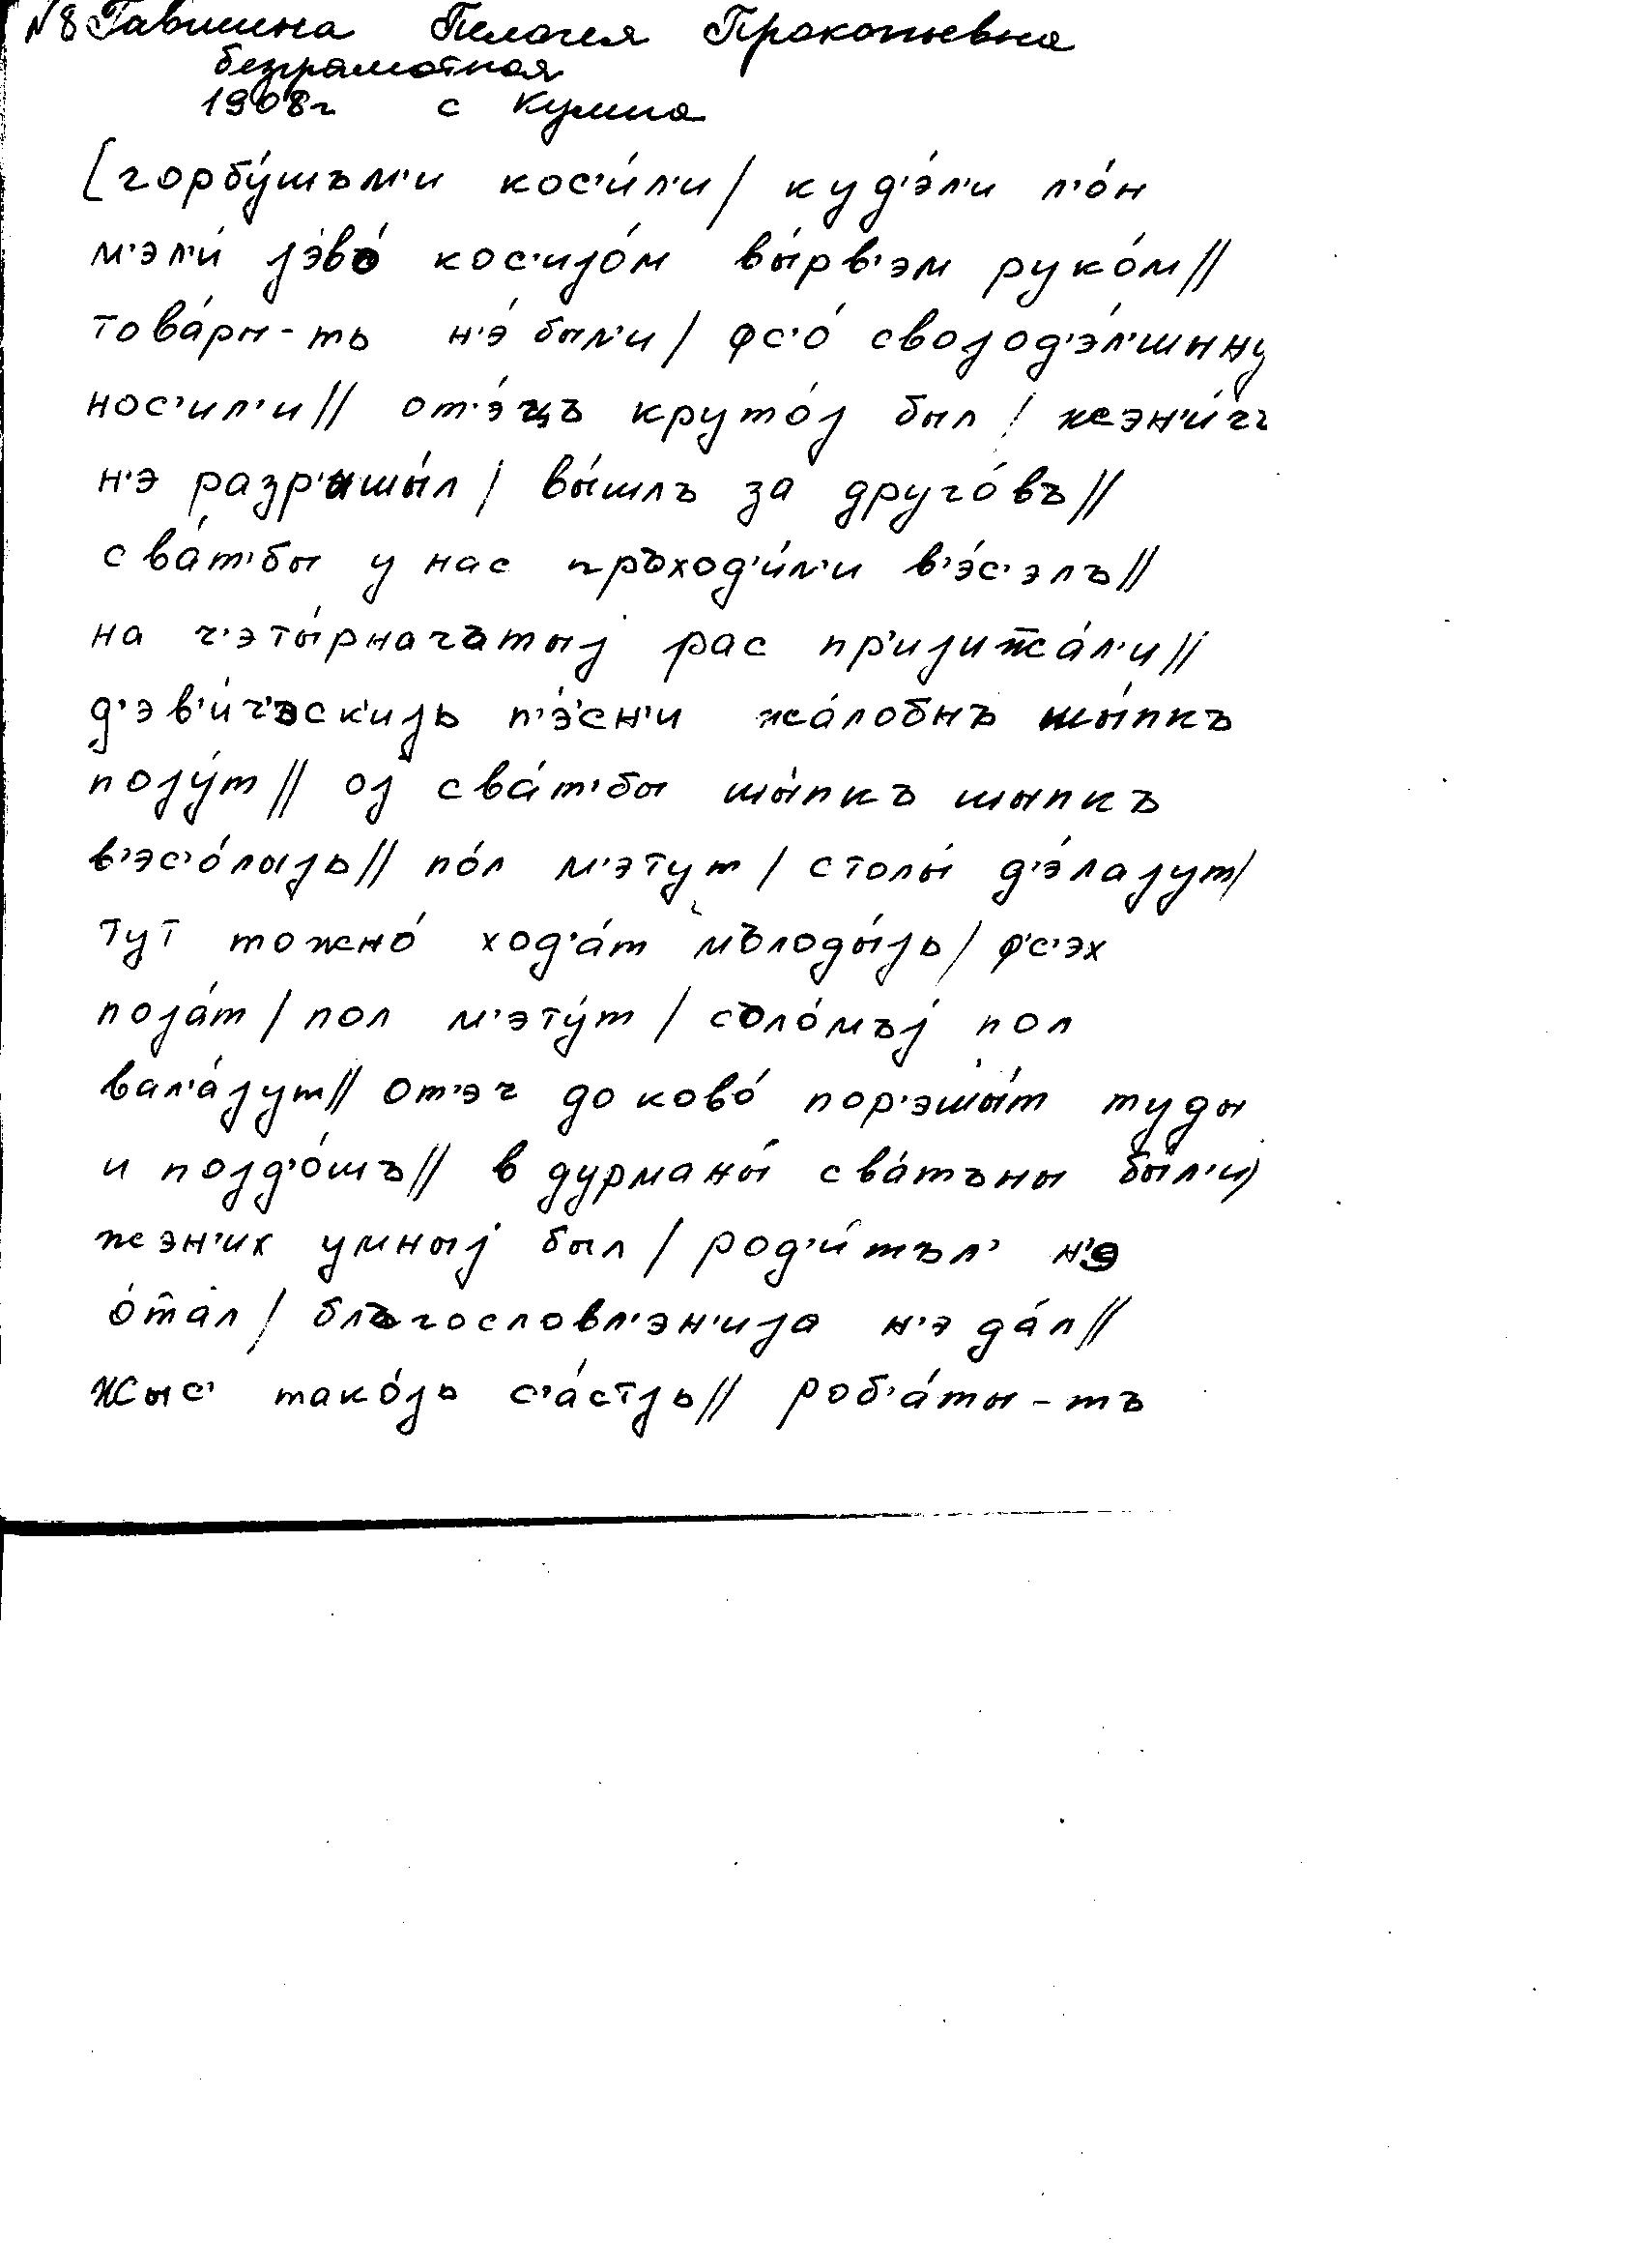 №8 Гавшина Пелагея Прокопьевна
безграмотная
1908г с Кулига
[горбу́шъм'и кос'и́л'и/ куд'э́л'и л'о́н
м'эл'и́ јэво́ кос'ијо́м вы́рв'эм руко́м//
това́ры-тъ н'э́ был'и/ фс'о́ својод'э́л'шыну
нос'ил'и// от'э́цъ круто́ј был/ жэн'и́чг
н'э разр'ишы́л/ вы́шлъ за друго́въ//
сва́т'бы у нас пръход'и́л'и в'э́с'элъ//
на ч'эты́рначатыј рас пр'ијижа́л'и//
д'эв'и́ч'эск'ијь п'э́сн'и жа́лобнъ шы́пкъ
појут// ој сва́т'бы шы́пкъ шыпкъ
в'эс'о́лыјь// по́л м'этут/ столы́ д'э́лајут/
тут тожно́ ход'а́т мълоды́јь/ ф'с'эх
поја́т/ пол м'эту́т/ соло́мъј пол
вал'а́јут// от'эч до ково́ пор'эшы́т туды
и појд'о́шъ// в дурманы́ сва́тъны бы́л'и/
жэн'их умныј был/ род'и́тъл' н'э
о́тал/ блъгословл'эн'ија н'э да́л//
жыс' тако́јь с'а́стјь// роб'а́ты-тъ